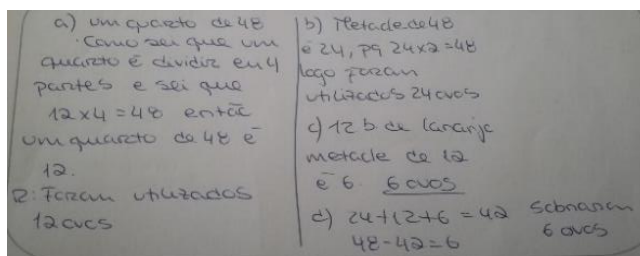 a) um quarto de 48
Como sei que um
quarto é dividir em 4
partes e sei que
12 x 4 = 48 então
um quarto de 48 é
12.
R: Foram utilizados
12 ovos
b) Metade de 48
é 24, pq 24x2=48
logo foram
utilizados 24 ovos
c) 12 b. de laranja
metade de 12
é 6. 6 ovos
d) 24+12+6 = 42 sobraram
48-42=6 6 ovos